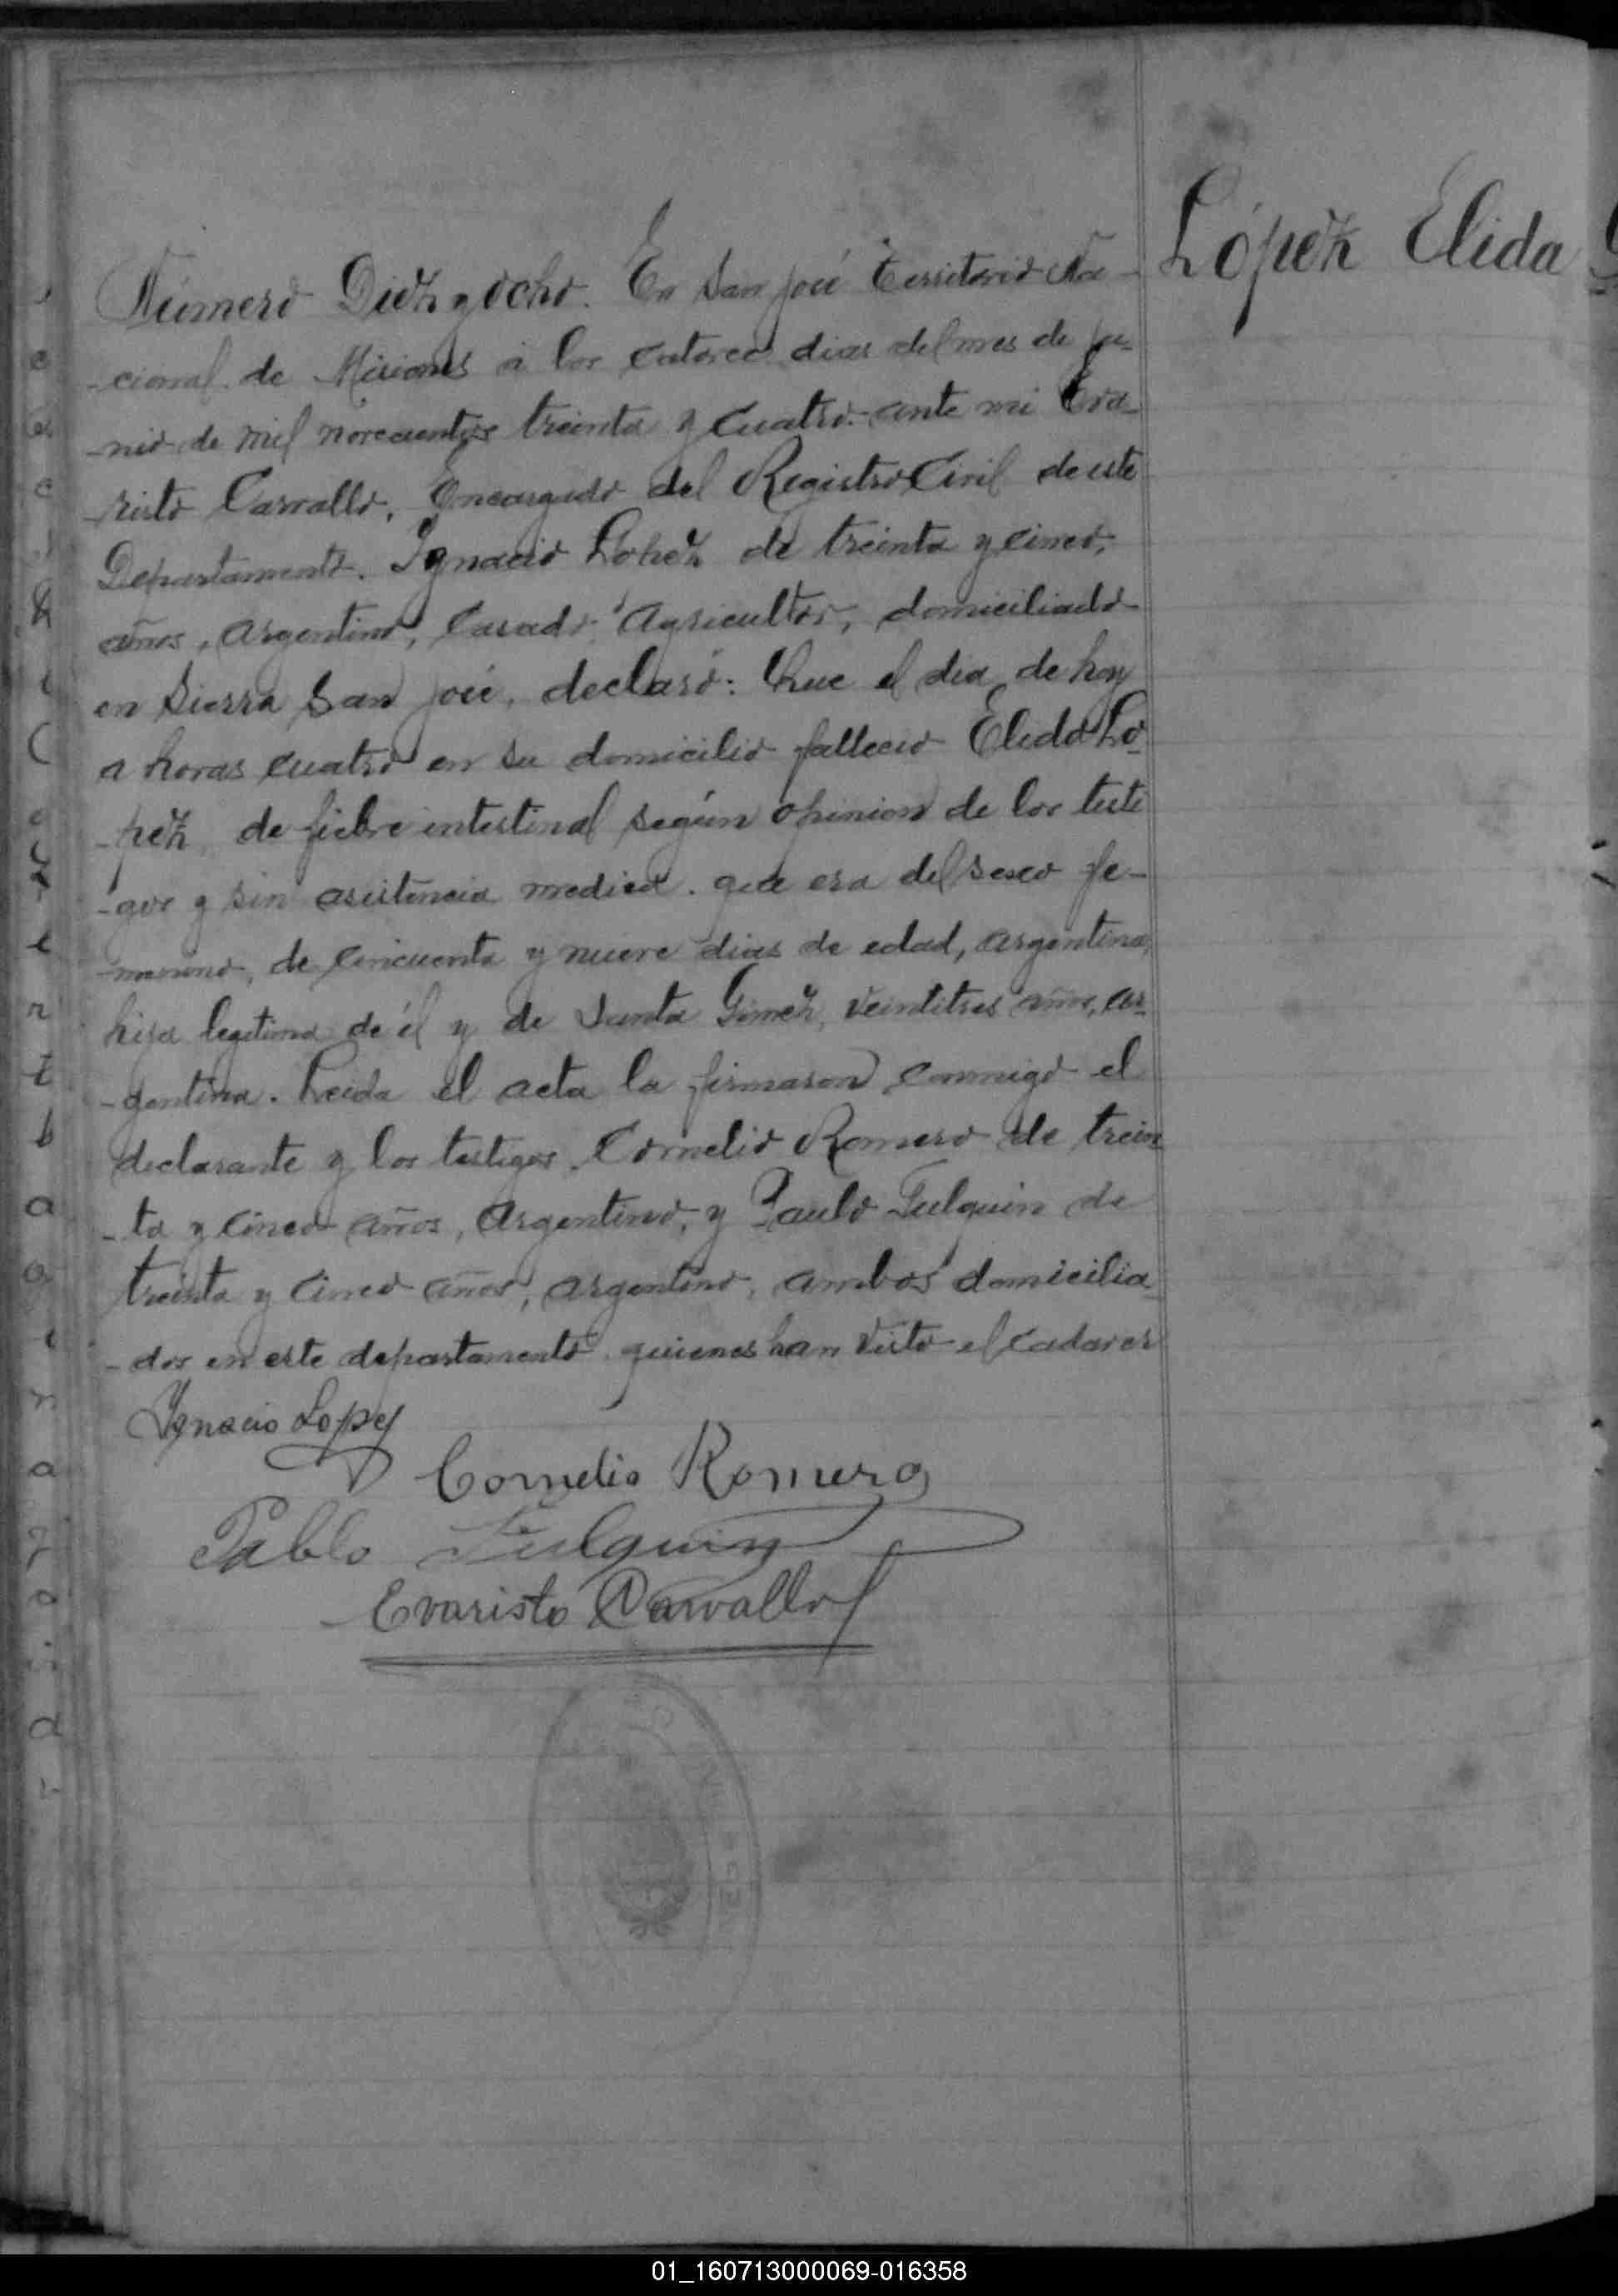 López Elida
Número Diez y ocho. En San José Territorio Na-
-cional de Misiones a los catorce dias del mes de ju-
-nio de mil novecientos treinta y cuatro. ante mi Eva-
-risto Carvallo, Encargado del Registro Civil de este
Departamento. Ygnacio Lopez de treinta y cinco,
años, argentino, casado, agricultor, domiciliado
en Sierra San José, declaró: Que el dia de hoy
a horas cuatro en su domicilio fallecio Elida Lo-
-pez, de fiebre intestinal según opinion de los testi
-gos y sin asistencia medica. que era del sexo fe-
-menino, de cincuenta y nueve dias de edad, argentina,
hija legitima de él y de Santa Gimez, veintitres años, ar-
-gentina. Leida el acta la firmaron conmigo el
declarante y los testigos Cornelio Romero de trein
-ta y cinco años, argentino, y Paulo Fulquin de
treinta y cinco años, argentino, ambos domicilia-
-dos en este departamento quienes han visto el cadaver
Ygnacio Lopez
Cornelio Romero
Pablo Fulquin
Evaristo Carvallo
01_160713000069-016358